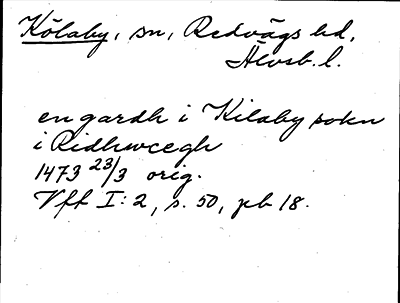 Kölaby, sn, Redvägs hd,
Älvsb. l.
en gardh i Kilaby sokn
i Ridhwægh
1473 23/3 orig.
Vff I: 2, s. 50, pb 18.